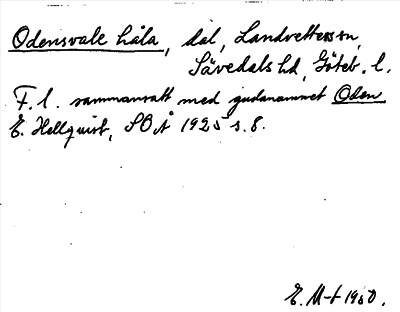 Odensvale håla, dal, Landvetters sn,
Sävedals hd, Göteb. l.
F. l. sammansatt med gudanamnet Oden.
E. Hellquist, SOÅ 1925 s. 8.
E. M-t 1950.